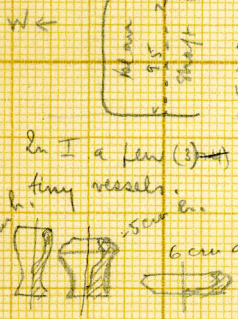 W ←
plan
95
shaft
In I a few (3)
tiny vessels.
h.
5 cm
h.
6 cm